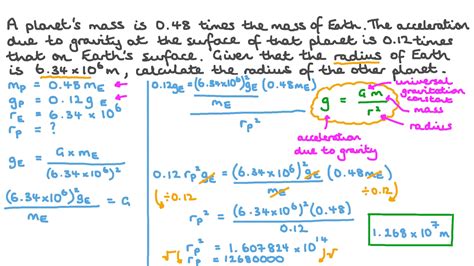 A planet's mass is 0.48 times the mass of Earth. The acceleration
due to gravity at the surface of that planet is 0.12 times
that on Earth's surface. Given that the radius of Earth
is 6.34×10⁶ m, calculate the radius of the other planet.
mₚ = 0.48mE
gₚ = 0.12gE
rE = 6.34×10⁶
rₚ = ?
gE = G×mE / (6.34×10⁶)²
(6.34×10⁶)²gE / mE = G
0.12gE = ((6.34×10⁶)²gE / mE)(0.48mE) / rₚ²
0.12 rₚ²gE = (6.34×10⁶)²gE (0.48mE) / mE
÷0.12 ÷0.12
rₚ² = (6.34×10⁶)²(0.48) / 0.12
√ rₚ² = 1.607824×10¹⁴ √
rₚ = 12680000
g = Gm / r²
universal
gravitation
constant
mass
radius
acceleration
due to gravity
1.268×10⁷ m